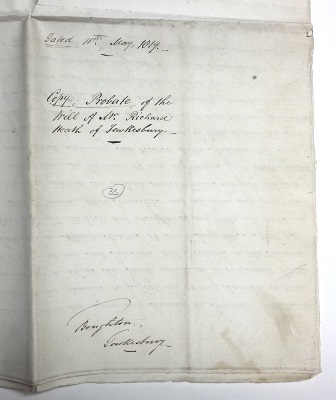 Dated 11th May 1819.
Copy, Probate, of the
Will of Mr. Richard
Heath of Tewkesbury.
Boughton.
Tewkesbury